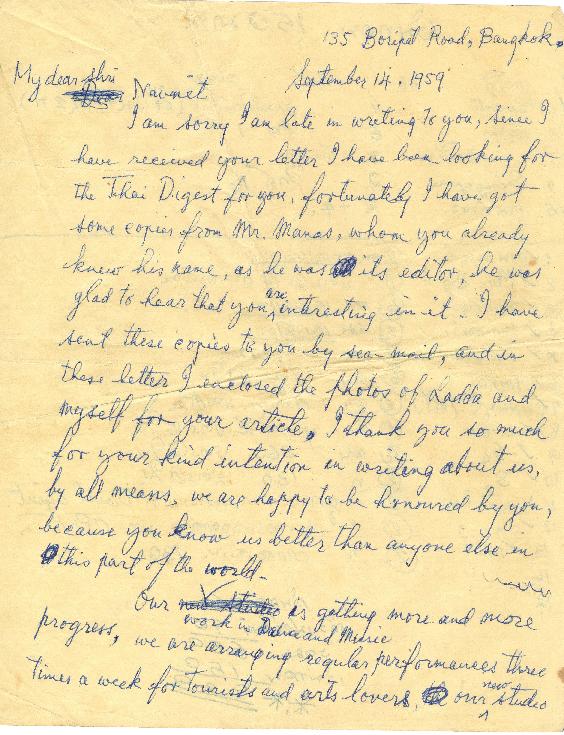 135 Boripat Road, Bangkok.
September 14. 1959
My dear Shri Navnit
I am sorry I am late in writing to you, since I
have received your letter I have been looking for
the Thai Digest for you, fortunately I have got
some copies from Mr. Manas, whom you already
knew his name, as he was its editor, he was
glad to hear that you are interesting in it. I have
sent these copies to you by sea-mail, and in
these letter I enclosed the photos of Ladda and
myself for your article. I thank you so much
for your kind intention in writing about us,
by all means, we are happy to be honoured by you,
because you know us better than anyone else in
this part of the world.
Our work in Dance and Music is getting more and more
progress, we are arranging regular performances three
times a week for tourists and arts lovers, our new studio